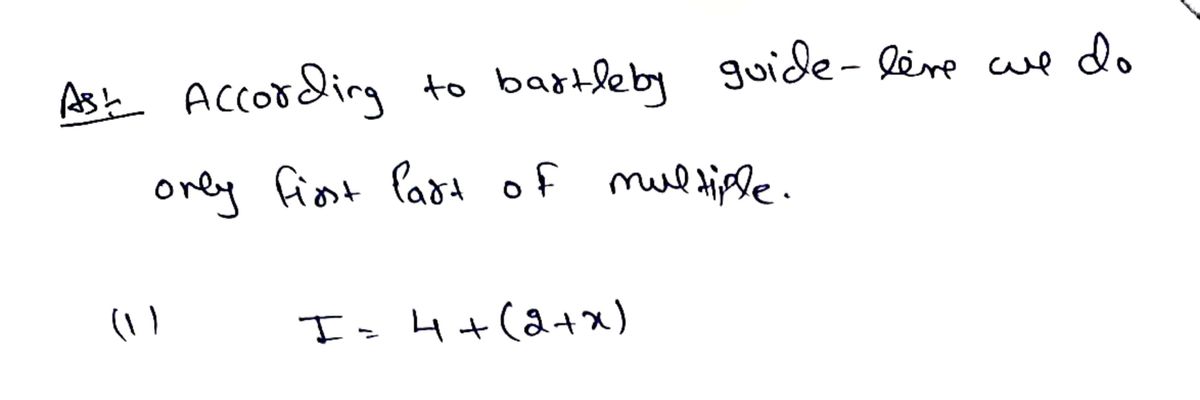 Ans:- According to bartleby guide-line we do
only first Part of multiple.
(1) I = 4 + (2+x)